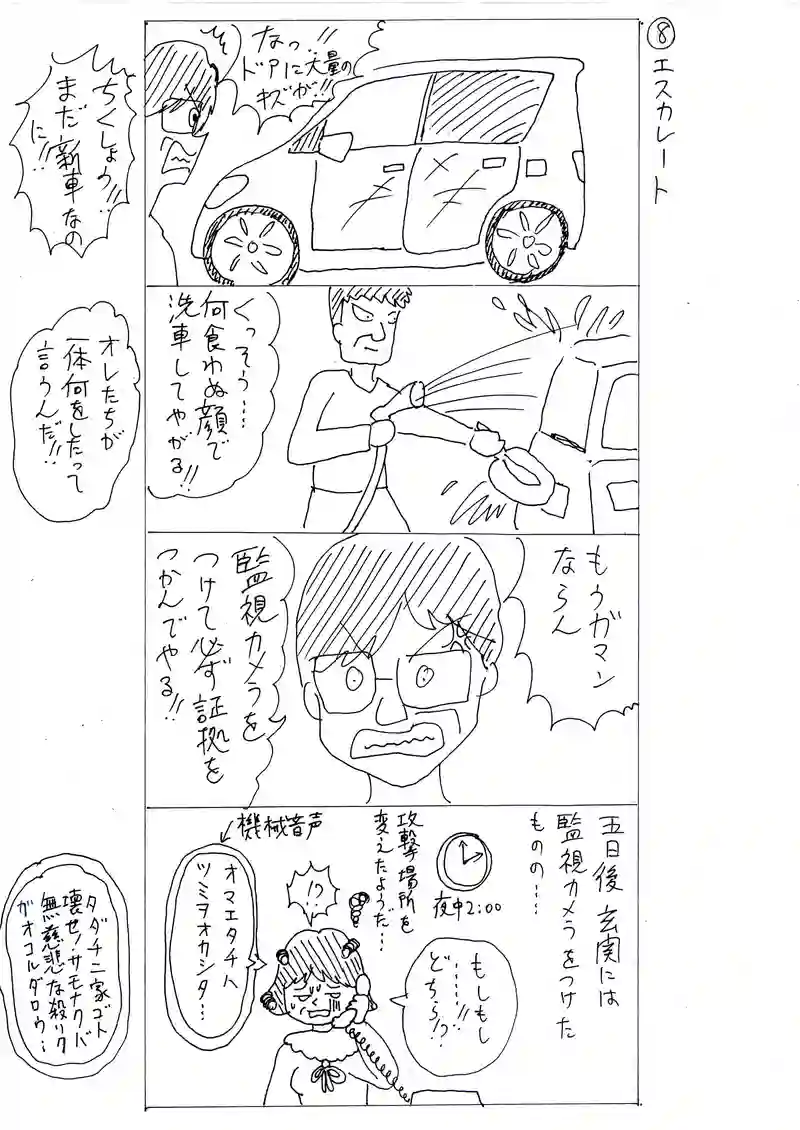 ⑧エスカレート
なっ…!!
ドアに大量の
キズが!!
ちくしょう!!
まだ新車なの
に!!
くっそう…
何食わぬ顔で
洗車してやがる!!
オレたちが
一体何をしたって
言うんだ!!
もうガマン
ならん
監視カメラを
つけて必ず証拠を
つかんでやる!!
五日後 玄関には
監視カメラをつけた
ものの…
夜中2:00
攻撃場所を
変えたようだ…
もしもし
……!!
どちら!?
!?
機械音声
オマエタチハ
ツミヲオカシタ…
タダチニ家ゴト
壊セ!サモナクバ
無慈悲な殺リク
ガオコルダロウ…